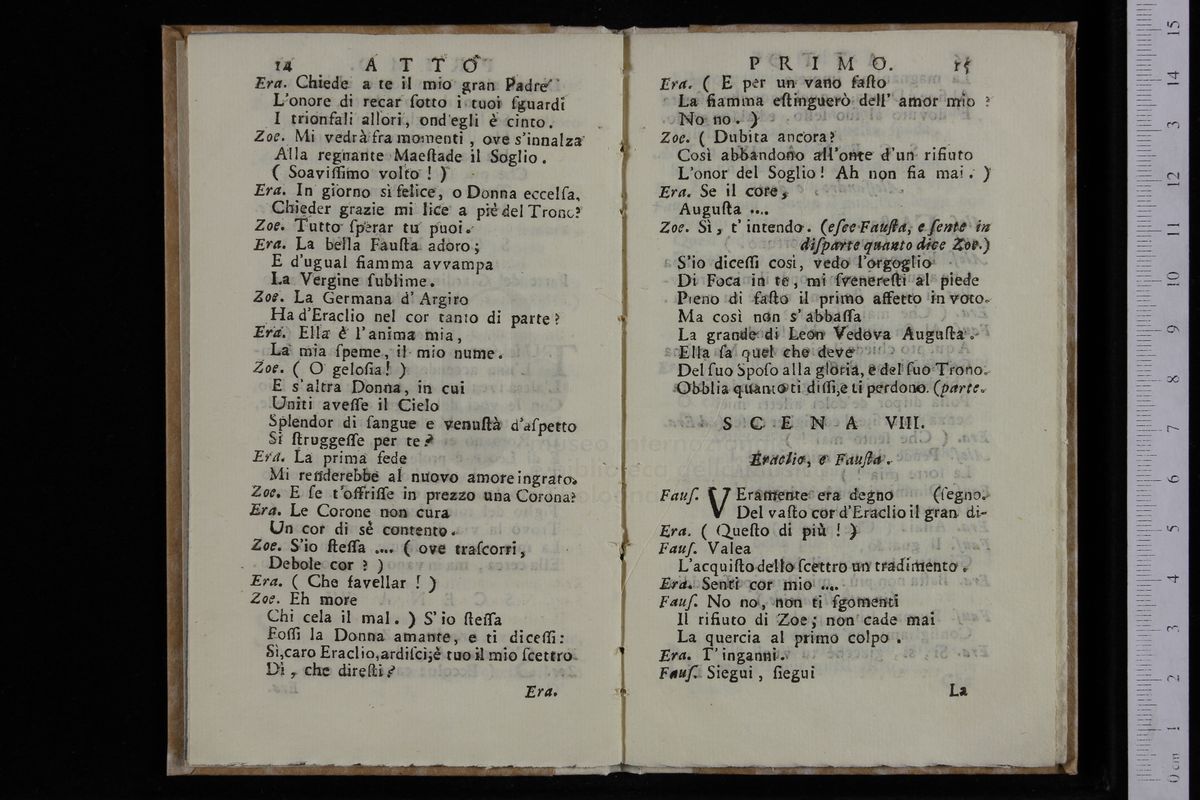 14 ATTO
Era. Chiede a te il mio gran Padre
L'onore di recar ſotto i tuoi ſguardi
I trionfali allori, ond'egli è cinto.
Zoe. Mi vedrà fra momenti, ove s'innalza
Alla regnante Maeſtade il Soglio.
( Soaviſſimo volto ! )
Era. In giorno sì felice, o Donna eccelſa,
Chieder grazie mi lice a piè del Trono?
Zoe. Tutto ſperar tu puoi.
Era. La bella Fauſta adoro;
E d'ugual fiamma avvampa
La Vergine ſublime.
Zoe. La Germana d' Argiro
Ha d'Eraclio nel cor tanto di parte?
Era. Ella è l'anima mia,
La mia ſpeme, il mio nume.
Zoe. ( O geloſia! )
E s'altra Donna, in cui
Uniti aveſſe il Cielo
Splendor di ſangue e venuſtà d'aſpetto
Si ſtruggeſſe per te?
Era. La prima fede
Mi renderebbe al nuovo amore ingrato.
Zoe. E ſe t'offriſſe in prezzo una Corona?
Era. Le Corone non cura
Un cor di sè contento.
Zoe. S'io ſteſſa .... ( ove traſcorri,
Debole cor ? )
Era. ( Che favellar ! )
Zoe. Eh more
Chi cela il mal. ) S'io ſteſſa
Foſſi la Donna amante, e ti diceſſi:
Sì, caro Eraclio, ardiſci; è tuo il mio ſcettro
Di, che direſti?
Era.
PRIMO. 15
Era. ( E per un vano faſto
La fiamma eſtinguerò dell' amor mio ?
No no. )
Zoe. ( Dubita ancora?
Così abbandono all'onte d'un rifiuto
L'onor del Soglio! Ah non fia mai. )
Era. Se il core,
Auguſta ....
Zoe. Sì, t' intendo. (eſce Fauſta, e ſente in
diſparte quanto dice Zoe.)
S'io diceſſi così, vedo l'orgoglio
Di Foca in te, mi ſvenereſti al piede
Pieno di faſto il primo affetto in voto.
Ma così non s'abbaſſa
La grande di Leon Vedova Auguſta.
Ella ſa quel che deve
Del ſuo Spoſo alla gloria, e del ſuo Trono.
Obblia quanto ti diſſi, e ti perdono. (parte.
SCENA VIII.
Eraclio, e Fauſta.
Fauſ. VEramente era degno (ſegno.
Del vaſto cor d'Eraclio il gran di-
Era. ( Queſto di più ! )
Fauſ. Valea
L'acquiſto dello ſcettro un tradimento.
Era. Senti cor mio ....
Fauſ. No no, non ti ſgomenti
Il rifiuto di Zoe; non cade mai
La quercia al primo colpo.
Era. T'inganni.
Fauſ. Siegui, ſiegui
La